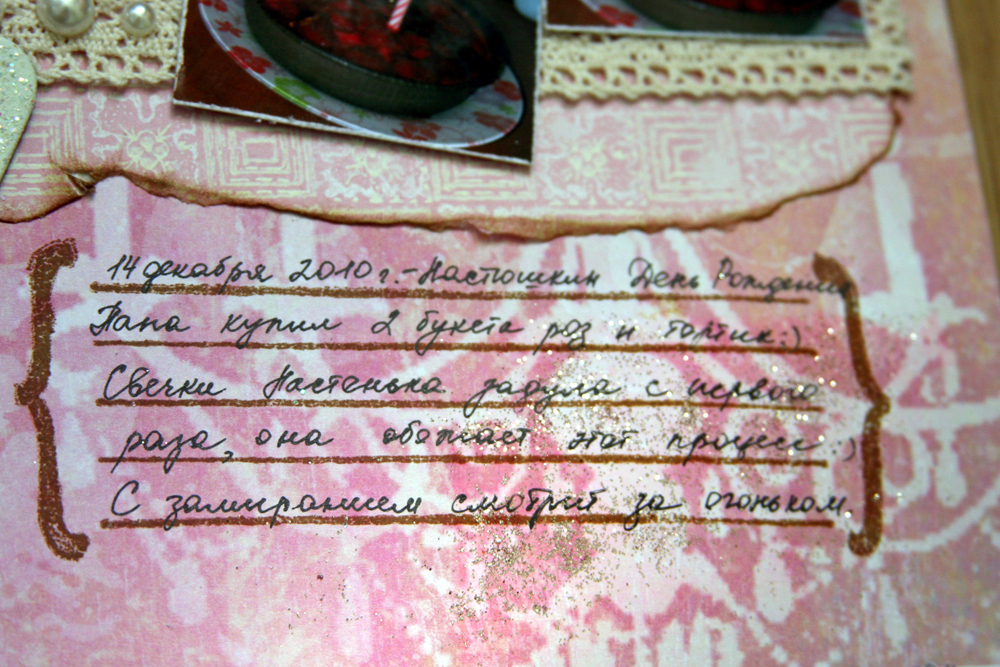 14 декабря 2010 г. - Настюшкин День Рождения
Папа купил 2 букета роз и тортик:)
Свечки Настенька задула с первого
раза, она обожает этот процесс :)
С замиранием смотрит за огоньком.